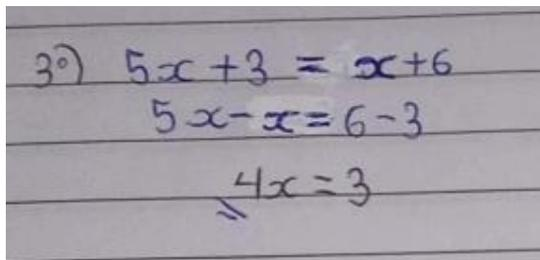 3°) 5x + 3 = x + 6
5x - x = 6 - 3
4x = 3